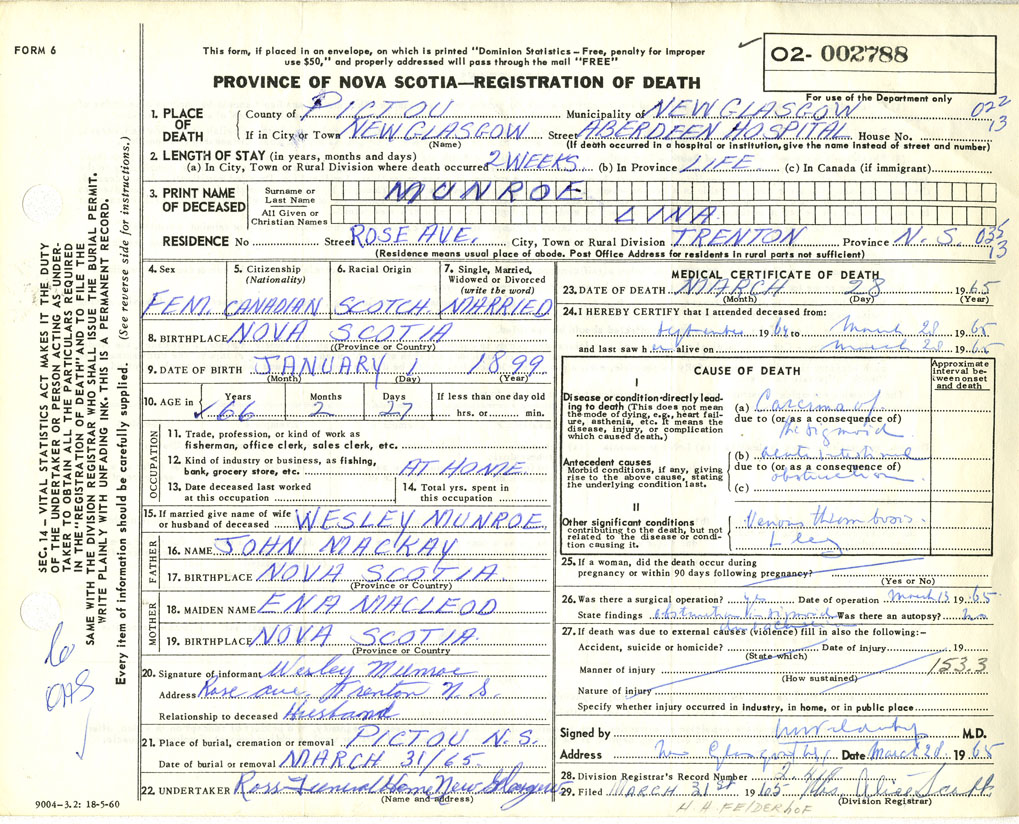 FORM 6
This form, if placed in an envelope, on which is printed "Dominion Statistics – Free, penalty for improper
use $50," and properly addressed will pass through the mail "FREE"
02- 002788
PROVINCE OF NOVA SCOTIA—REGISTRATION OF DEATH
For use of the Department only
022
13
1. PLACE OF DEATH
County of PICTOU Municipality of NEW GLASGOW
If in City or Town NEW GLASGOW Street ABERDEEN HOSPITAL House No.
(Name) (If death occurred in a hospital or institution, give the name instead of street and number)
2. LENGTH OF STAY (in years, months and days)
(a) In City, Town or Rural Division where death occurred 2 WEEKS (b) In Province LIFE (c) In Canada (if immigrant)
3. PRINT NAME OF DECEASED
Surname or Last Name MUNROE
All Given or Christian Names LINA
RESIDENCE No Street ROSE AVE. City, Town or Rural Division TRENTON Province N.S. 035
13
(Residence means usual place of abode. Post Office Address for residents in rural parts not sufficient)
4. Sex 5. Citizenship (Nationality) 6. Racial Origin 7. Single, Married, Widowed or Divorced (write the word)
FEM. CANADIAN SCOTCH MARRIED
8. BIRTHPLACE NOVA SCOTIA
(Province or Country)
9. DATE OF BIRTH JANUARY 1 1899
(Month) (Day) (Year)
10. AGE in Years Months Days If less than one day old
66 2 27 hrs. or min.
OCCUPATION
11. Trade, profession, or kind of work as
fisherman, office clerk, sales clerk, etc.
12. Kind of industry or business, as fishing,
bank, grocery store, etc. AT HOME
13. Date deceased last worked
at this occupation
14. Total yrs. spent in
this occupation
15. If married give name of wife
or husband of deceased WESLEY MUNROE
FATHER
16. NAME JOHN MACKAY
17. BIRTHPLACE NOVA SCOTIA
(Province or Country)
MOTHER
18. MAIDEN NAME ENA MACLEOD
19. BIRTHPLACE NOVA SCOTIA.
(Province or Country)
20. Signature of informant Wesley Munroe
Address Rose ave. Trenton N.S.
Relationship to deceased Husband
21. Place of burial, cremation or removal PICTOU N.S.
Date of burial or removal MARCH 31/65.
22. UNDERTAKER Ross Funeral Home New Glasgow
(Name and address)
MEDICAL CERTIFICATE OF DEATH
23. DATE OF DEATH MARCH 28 1965
(Month) (Day) (Year)
24. I HEREBY CERTIFY that I attended deceased from:
September 1964 to March 28 1965
and last saw h er alive on March 28 1965
CAUSE OF DEATH
Approximate interval between onset and death
I
Disease or condition directly leading to death (This does not mean
the mode of dying, e.g., heart failure, asthenia, etc. It means the
disease, injury, or complication
which caused death.)
(a) Carcinoma of
due to (or as a consequence of)
the sigmoid
Antecedent causes
Morbid conditions, if any, giving
rise to the above cause, stating
the underlying condition last.
(b) acute intestinal
due to (or as a consequence of)
obstruction
(c)
II
Other significant conditions
contributing to the death, but not
related to the disease or condition causing it.
Venous thrombosis
L leg
25. If a woman, did the death occur during
pregnancy or within 90 days following pregnancy?
(Yes or No)
26. Was there a surgical operation? yes Date of operation March 13 1965
State findings obstruction sigmoid Was there an autopsy? no
27. If death was due to external causes (violence) fill in also the following:–
Accident, suicide or homicide? Date of injury 19
(State which)
Manner of injury 153.3
(How sustained)
Nature of injury
Specify whether injury occurred in industry, in home, or in public place
Signed by M.D.
Address New Glasgow Date March 28 1965
28. Division Registrar's Record Number
29. Filed MARCH 31st 1965 Mrs. Alice Scott
(Division Registrar)
H.H. FELDERHOF
SEC. 14 – VITAL STATISTICS ACT MAKES IT THE DUTY
OF THE UNDERTAKER OR PERSON ACTING AS UNDERTAKER TO OBTAIN ALL THE PARTICULARS REQUIRED
IN THE "REGISTRATION OF DEATH" AND TO FILE THE
SAME WITH THE DIVISION REGISTRAR WHO SHALL ISSUE THE BURIAL PERMIT.
WRITE PLAINLY WITH UNFADING INK. THIS IS A PERMANENT RECORD.
Every item of information should be carefully supplied. (See reverse side for instructions.)
OAS
9004-3.2: 18-5-60